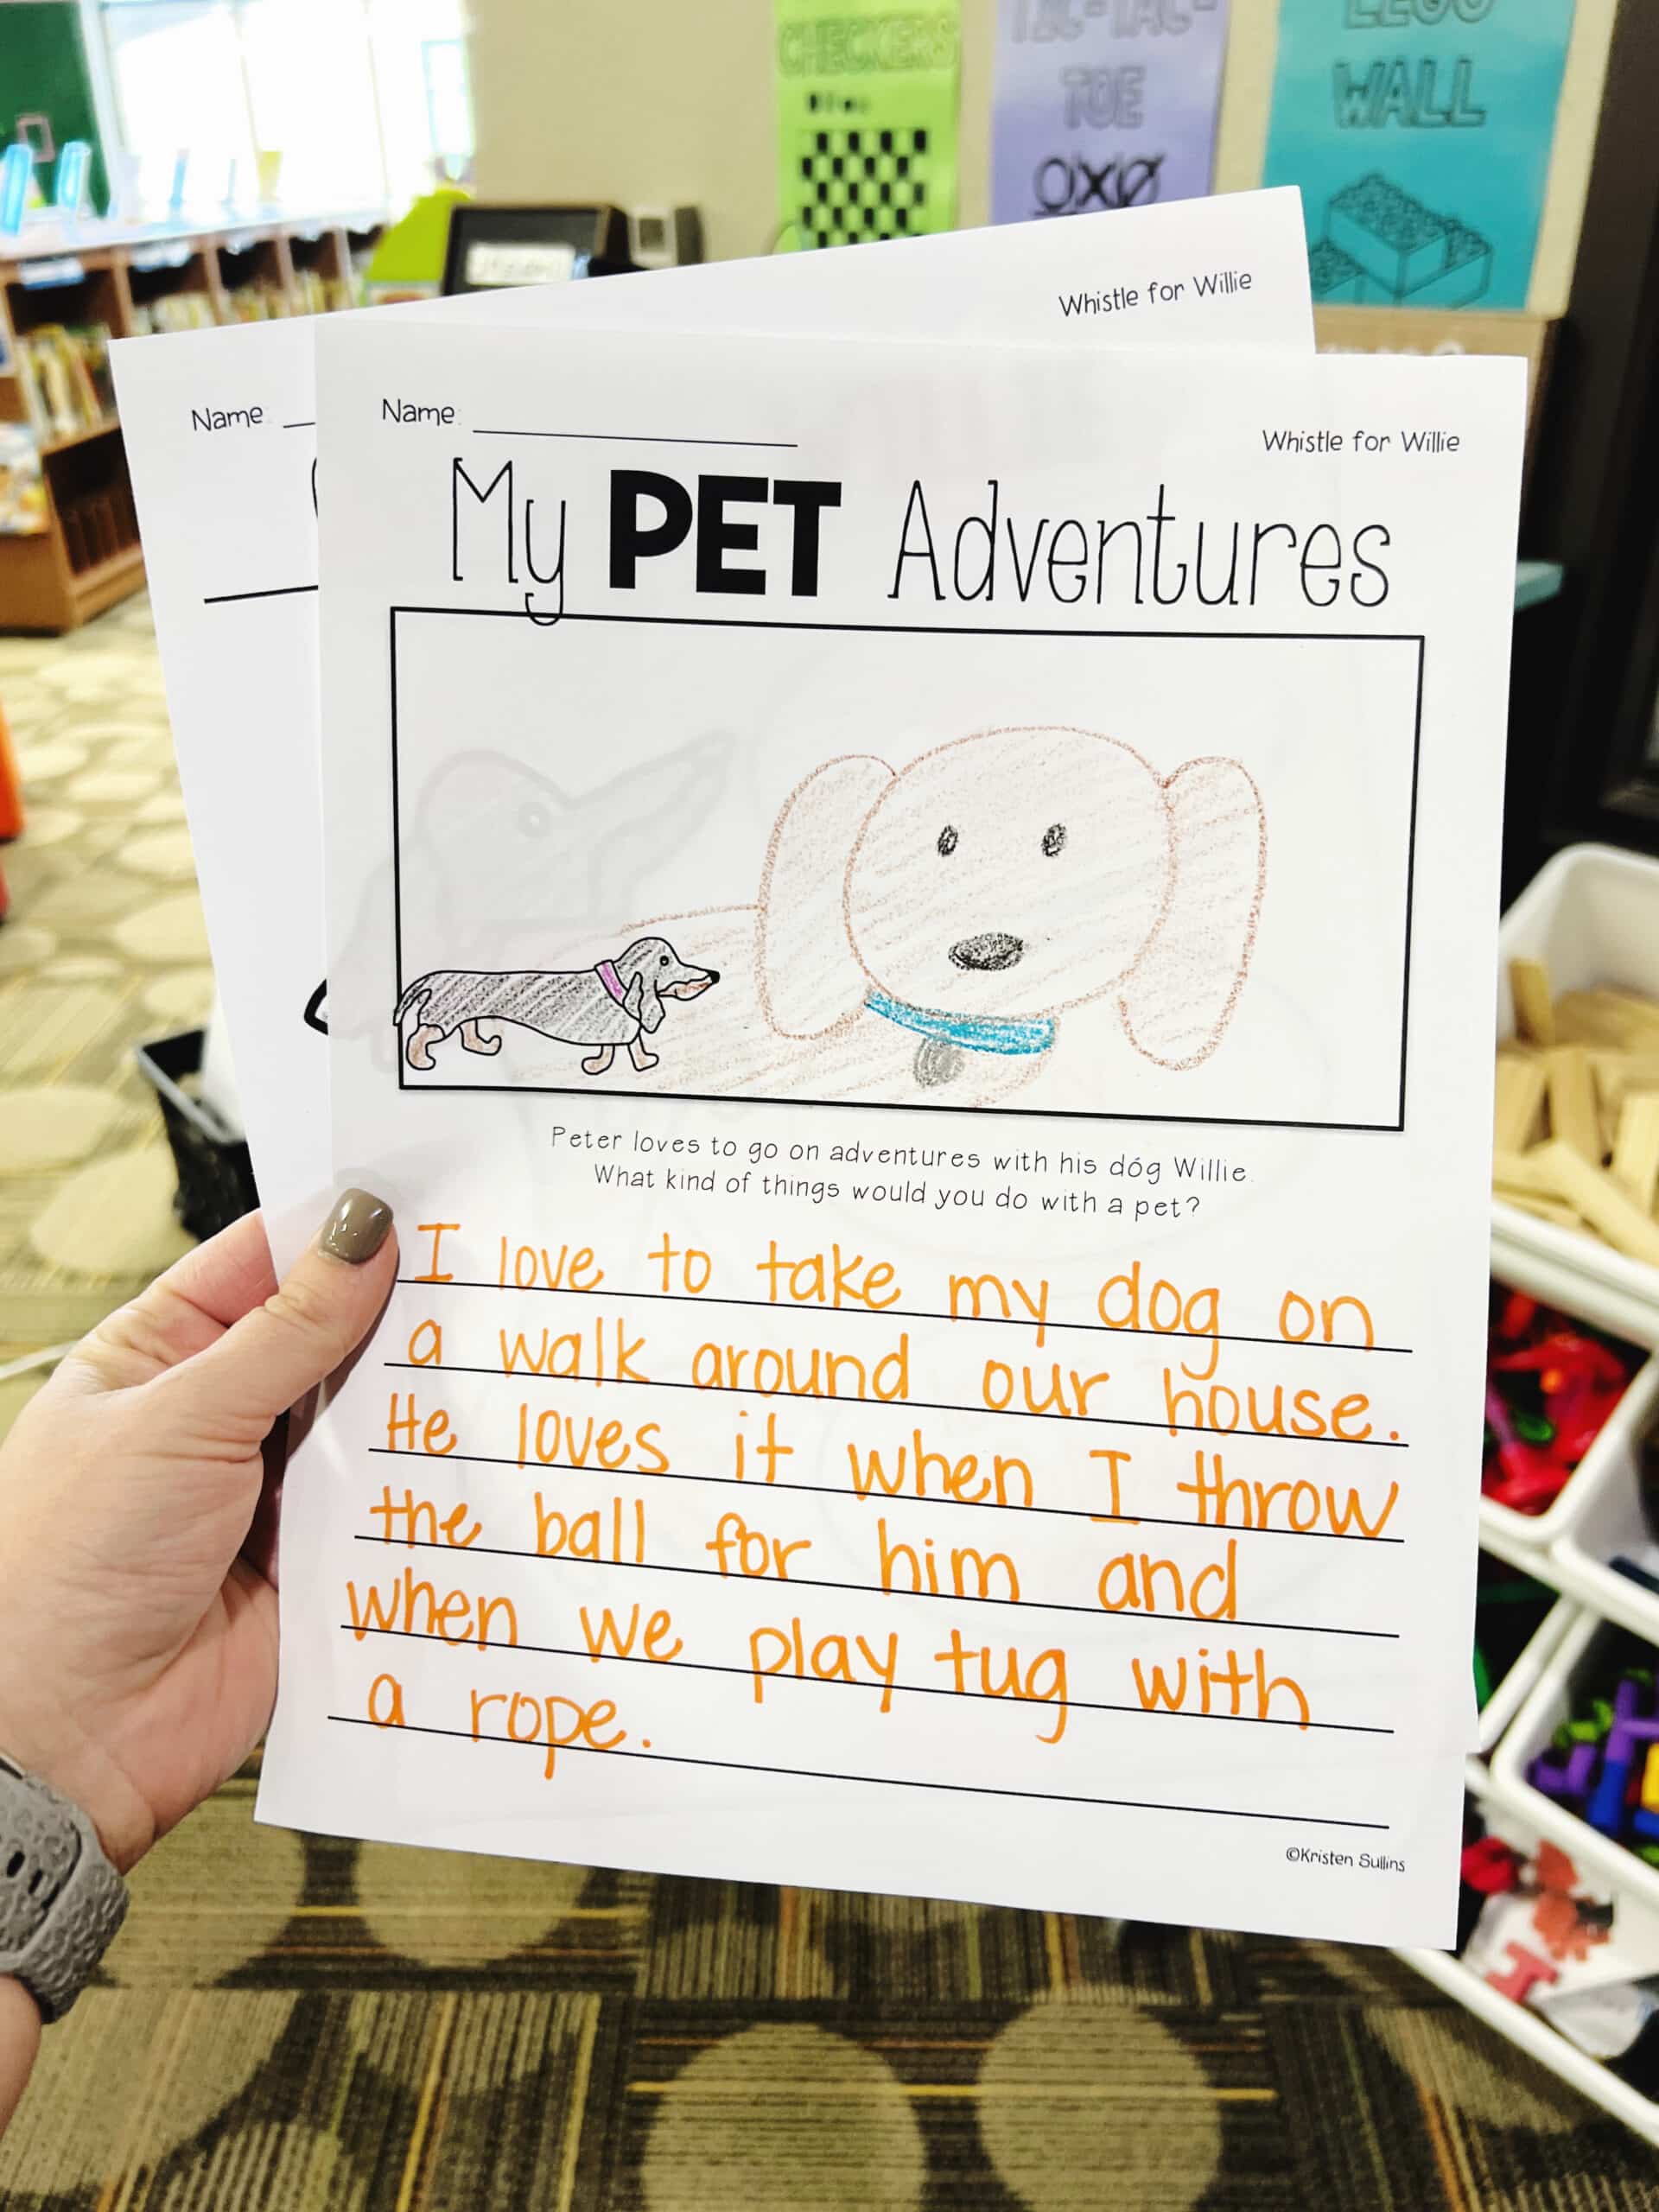 CHECKERS
TIC-TAC-
TOE
LEGO
WALL
Whistle for Willie
Name:
Name:
Whistle for Willie
My PET Adventures
Peter loves to go on adventures with his dog Willie.
What kind of things would you do with a pet?
I love to take my dog on
a walk around our house.
He loves it when I throw
the ball for him and
when we play tug with
a rope.
©Kristen Sullins